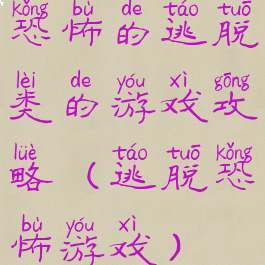 kǒng bù de táo tuō
恐怖的逃脱
lèi de yóu xì gōng
类的游戏攻
lüè táo tuō kǒng
略（逃脱恐
bù yóu xì
怖游戏）